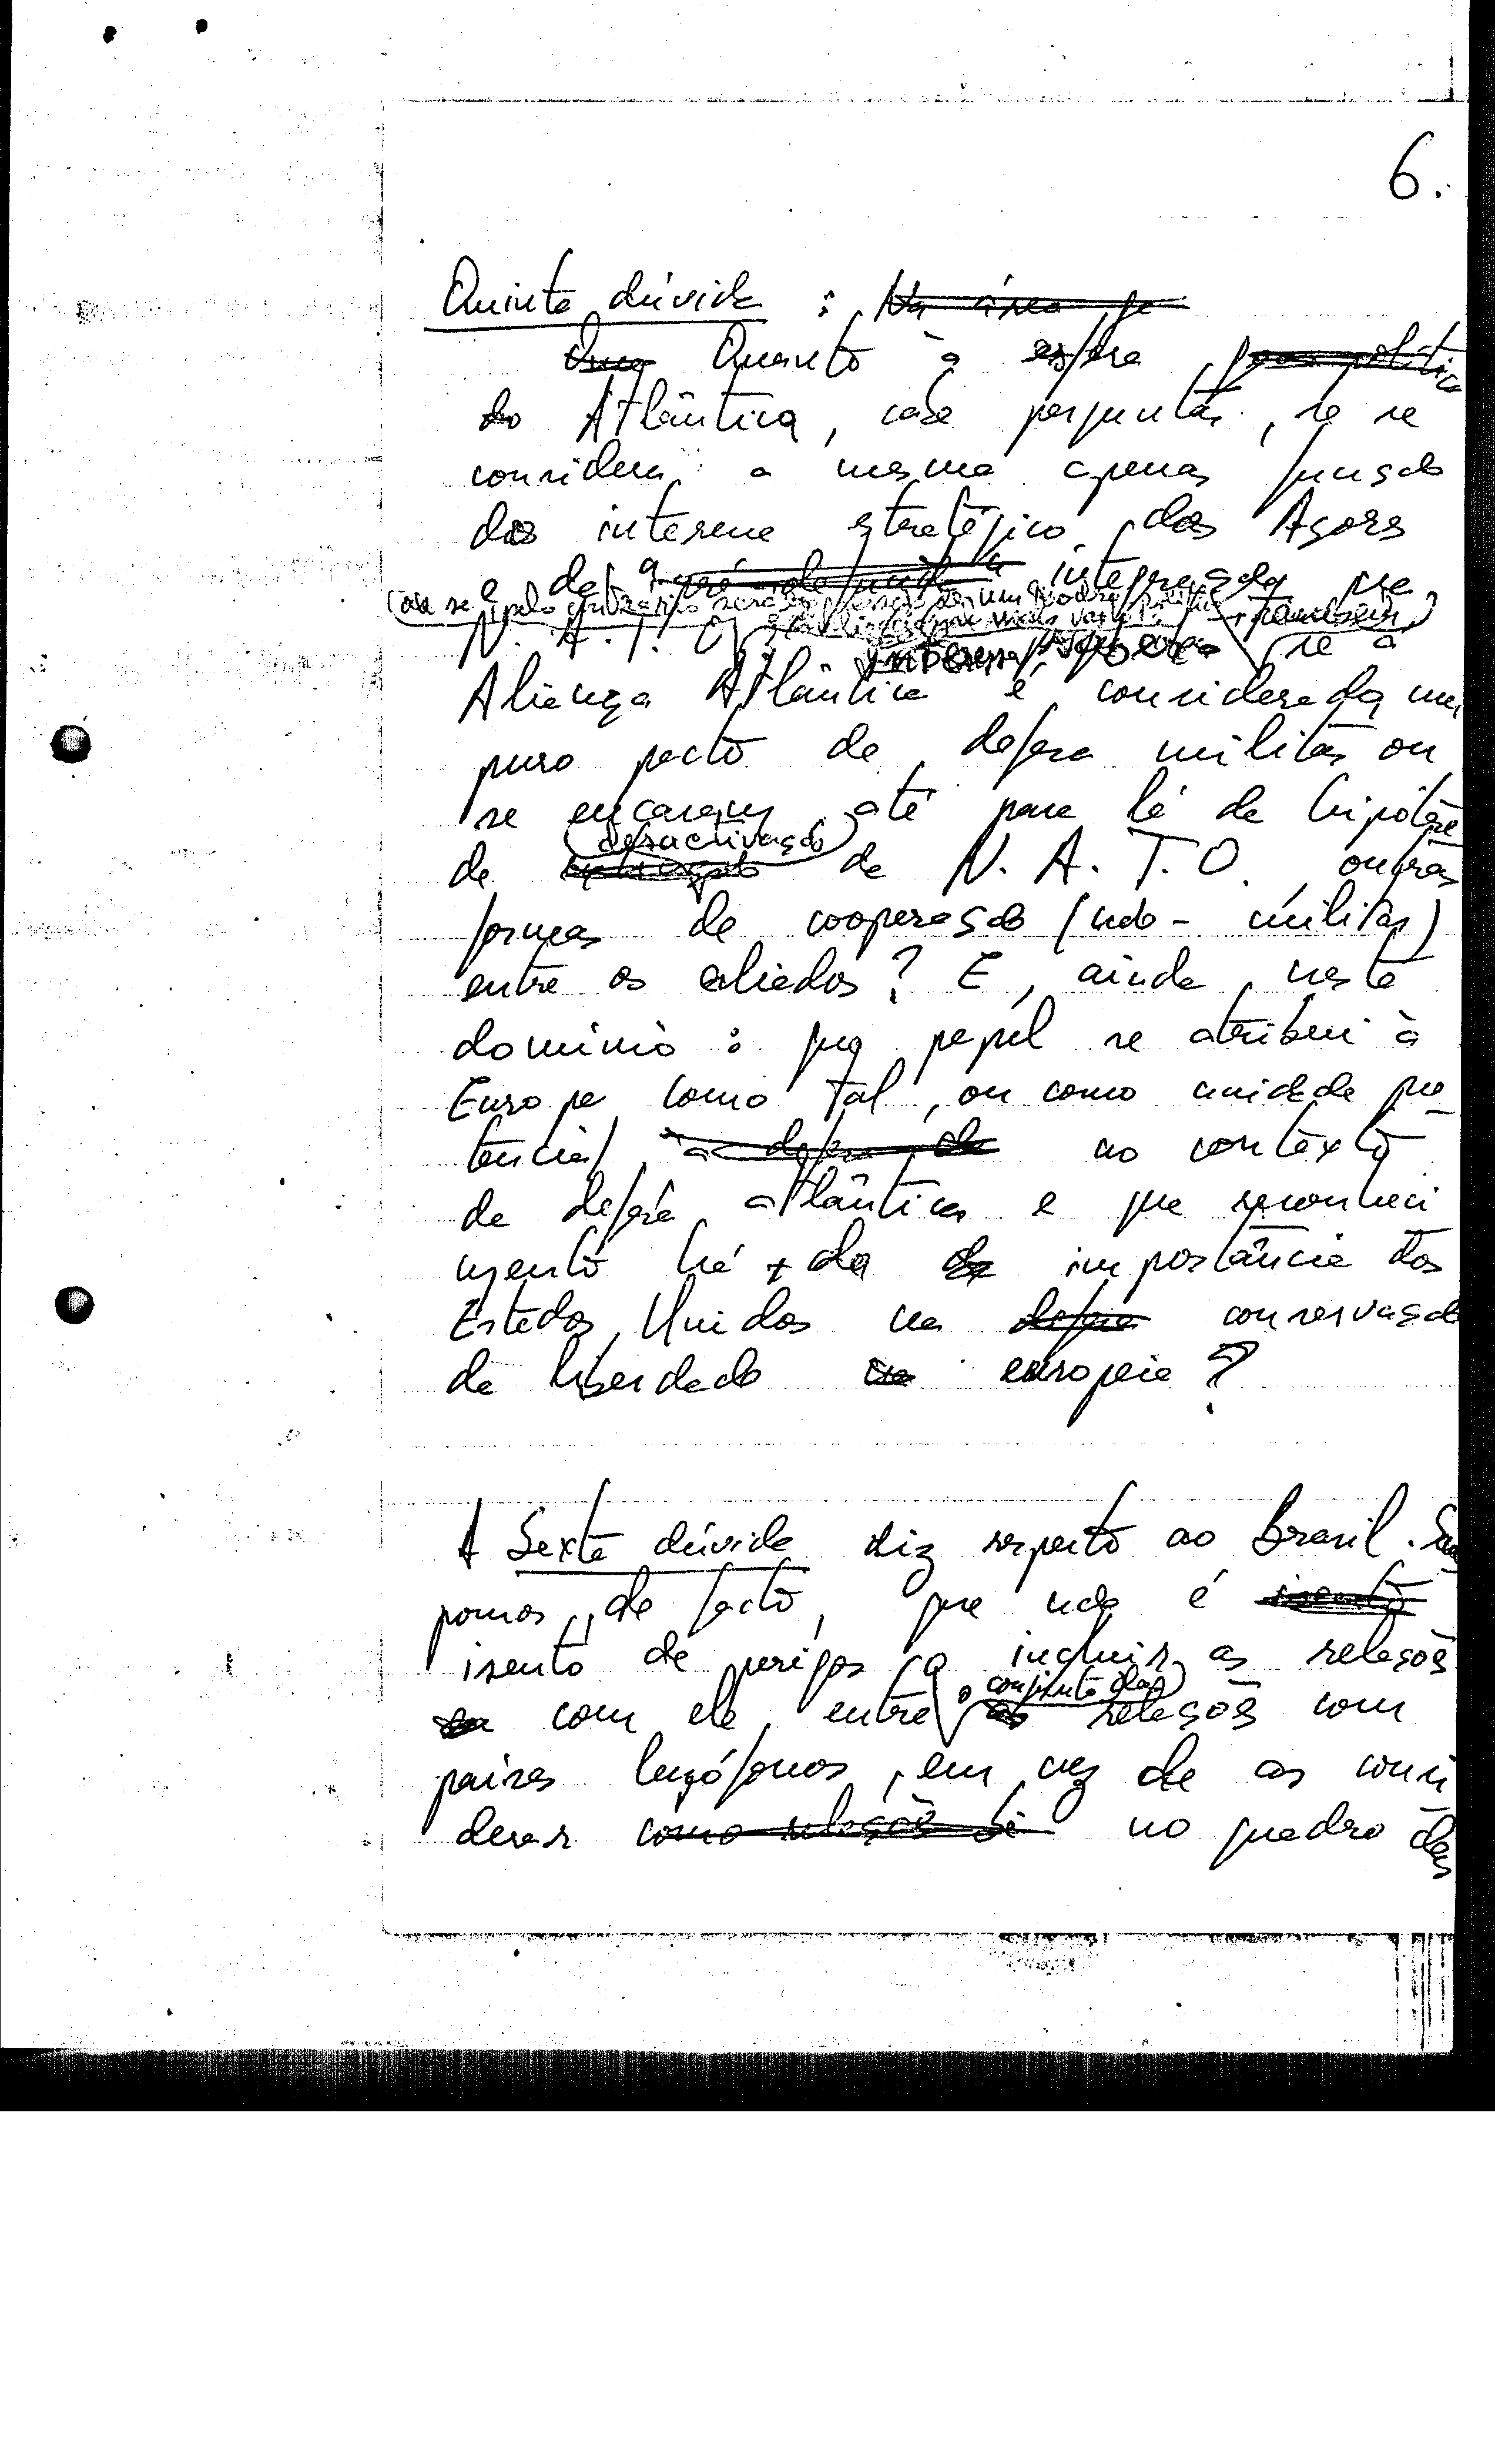 6.
Quinta dúvida : Na área que
Quanto à esfera
do Atlântica, cabe perguntar, se se
considera a mesma apenas função
dos interesse estratégico dos Açores
e da integração na
(ou se, pelo contrário, será expressão de um quadro
N. A. T. O. também) se a
Aliança Atlântica é considerada um
puro pacto de defesa militar ou
se encaram até para lá da hipótese
(desactivação)
da da N. A. T. O., outras
formas de cooperação (não-militar)
entre os aliados? E, ainda neste
domínio : que papel se atribui à
Europa como tal, ou como unidade po
tencial no contexto
da defesa atlântica e que reconheci
mento há da importância dos
Estados Unidos na defesa conservação
da liberdade na europeia?
A Sexta dúvida diz respeito ao Brasil. Su
pomos, de facto, que não é isento
isento de perigos o incluir as relações
o conjunto das
com ele, entre as relações com
países lusófonos, em vez de as consi
derar como relações no quadro das